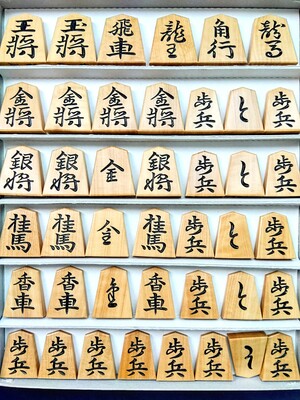 王將 玉將 飛車 龍王 角行 龍馬
金將 金將 金將 金將 歩兵 と 歩兵
銀将 銀将 金 銀将 歩兵 と 歩兵
桂馬 桂馬 桂馬 歩兵 と 歩兵
香車 香車 香車 歩兵 と 歩兵
歩兵 歩兵 歩兵 歩兵 歩兵 歩兵 と 歩兵